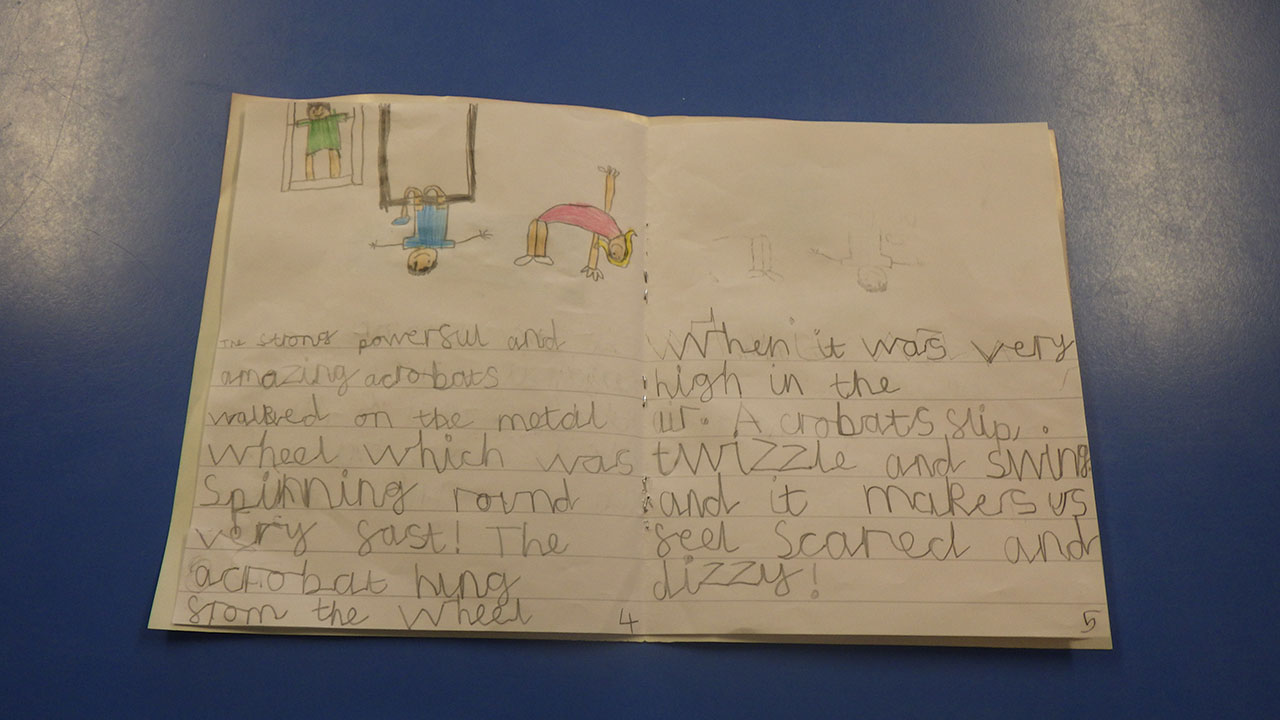 The strong powerful and
amazing acrobats
walked on the metal
wheel which was
spinning round
very fast! The
acrobat hung
from the wheel
4
When it was very
high in the
air. Acrobats flip,
twizzle and swing
and it makers us
feel scared and
dizzy!
5